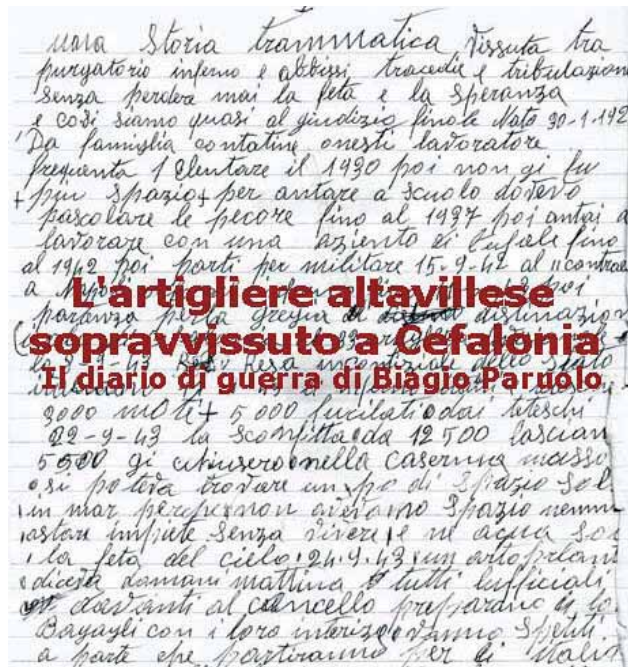 una Storia trammatica vissuta tra
purgatorio inferno e abbissi tracedie e tribulazion
senza perdere mai la feta e la speranza
e così siamo quasi al giudizio finale Nato 30-1-192
Da famiglia contatine onesti lavoratore
frequenta 1 Elentare il 1930 poi non gi fu
più spazio per antare a scuolo dovevo
pascolare le pecore fino al 1937 poi antai a
lavorare con una aziento di bufale fino
al 1942 poi parti per militare 15-9-42 al
a
L'artigliere altavillese
partenza per la gregia distinazion
sopravvissuto a Cefalonia
9-43 Resa
Il diario di guerra di Biagio Paruolo
3000 moti + 5000 fucilati dai teteschi
22-9-43 la sconfitta da 12500 lascian
5500 gi chiusero nella caserma
si poteva trovare un po di spazio sol
in mar per non avevamo spazio nemm
astare impiete senza vivere e ne acqua sol
la feta del cielo 24.9.43 un
diceva domani mattina tutti lufficiali
davanti al cancello preparano
Bagagli con i loro
a parte che partiranno per